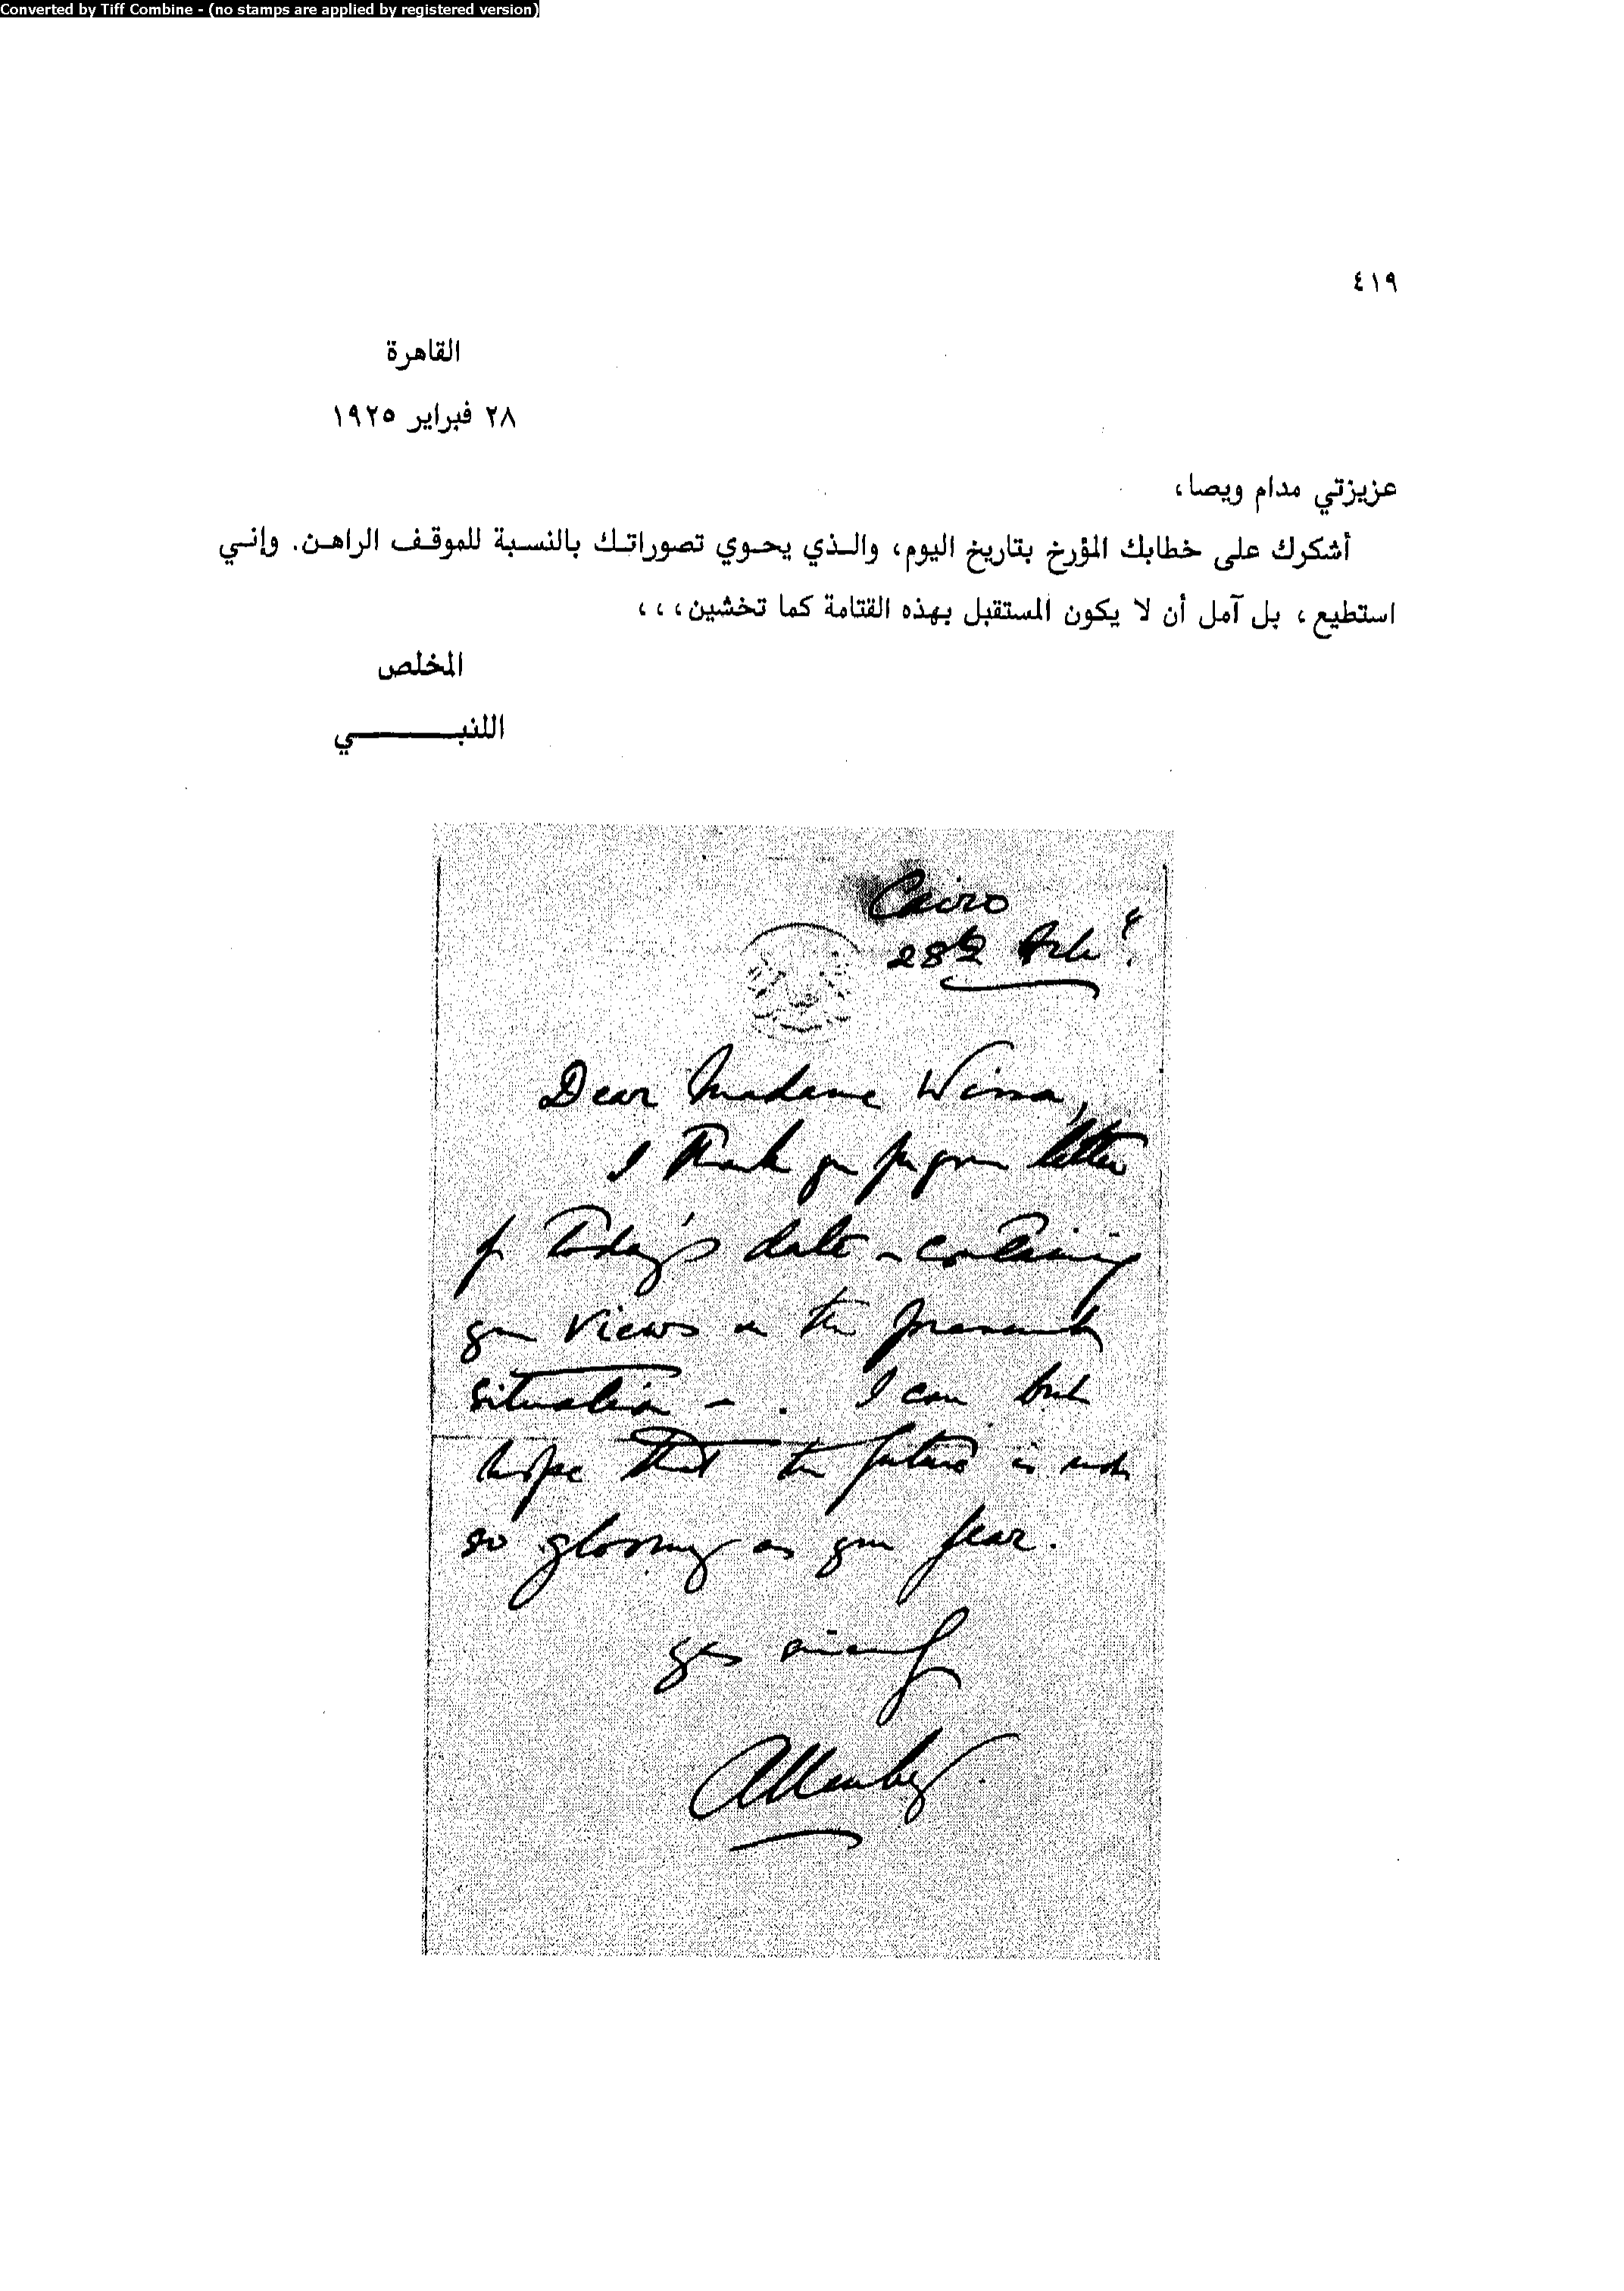 Converted by Tiff Combine - (no stamps are applied by registered version)
٤١٩
القاهرة
٢٨ فبراير ١٩٢٥
عزيزتي مدام ويصا،
أشكرك على خطابك المؤرخ بتاريخ اليوم، والذي يحوي تصوراتك بالنسبة للموقف الراهن. وإني
استطيع، بل آمل أن لا يكون المستقبل بهذه القتامة كما تخشين،،،
المخلص
اللنبــــــــي
Cairo
28th Feb
Dear Madame Wissa,
I thank you for your letter
of today's date - containing
your views on the present
situation - . I can but
hope that the future is not
so gloomy as you fear.
Yrs sincerely
Allenby.